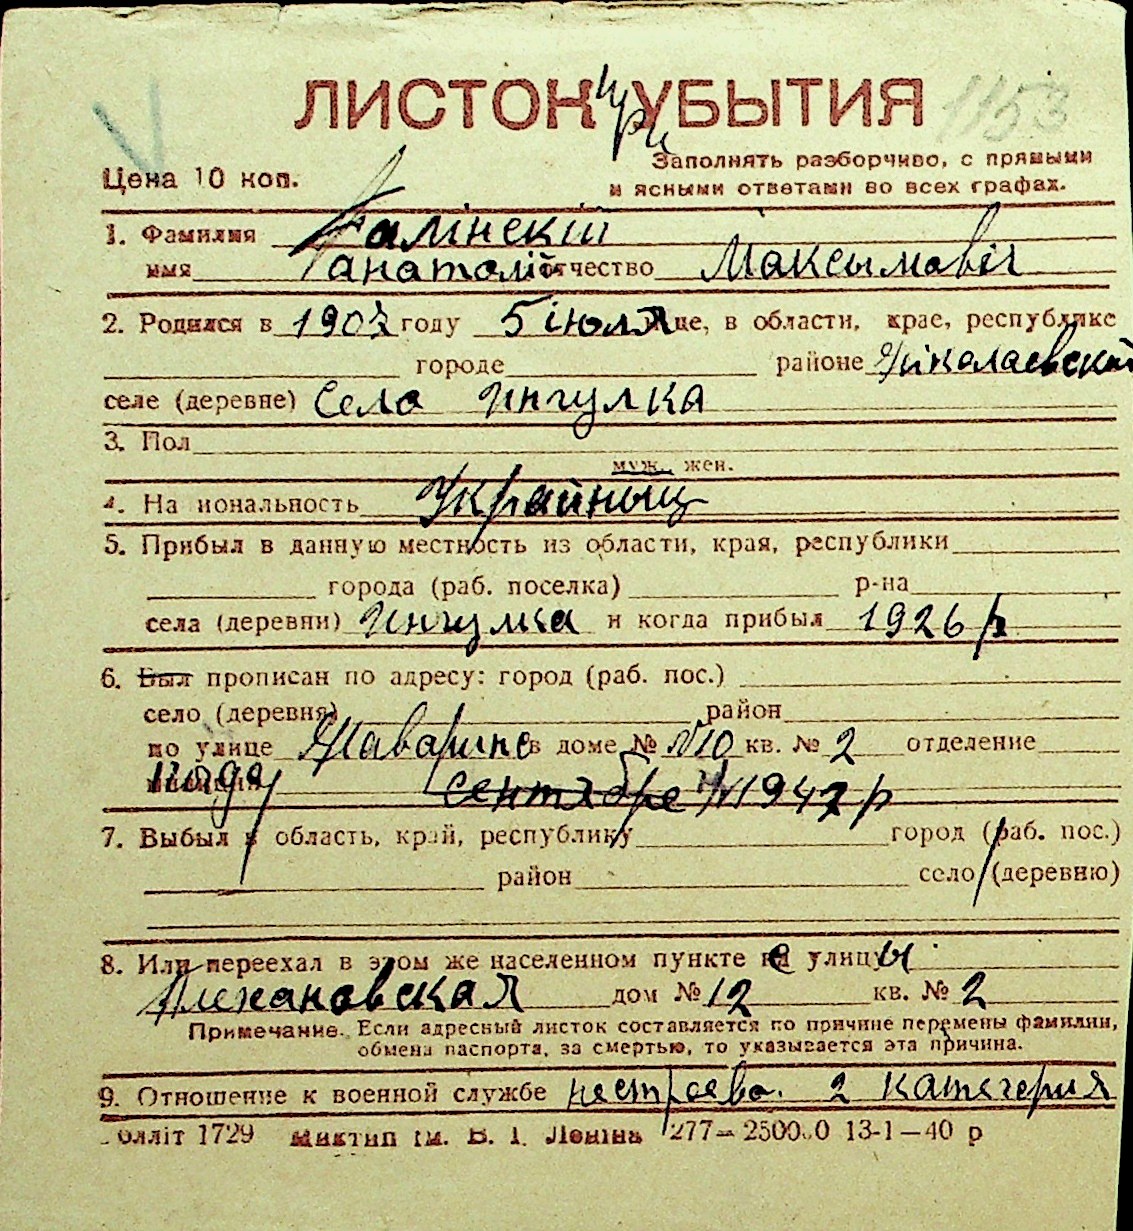 ЛИСТОК УБЫТИЯ
при
1153
Цена 10 коп.
Заполнять разборчиво, с прямыми
и ясными ответами во всех графах.
1. Фамилия Галінскій
имя анатолій отчество Максымавіч
2. Родился в 1903 году 5 июля це, в области, крае, республике
городе районе Ніколаевский
селе (деревне) Село Ингулка
3. Пол
муж. жен.
4. На иональность Украйныц
5. Прибыл в данную местность из области, края, республики
города (раб. поселка) р-на
села (деревни) Ингулка и когда прибыл 1926 р
6. Был прописан по адресу: город (раб. пос.)
село (деревня) район
по улице в доме № №10 кв. № 2 отделение
сентябре 1942 р
7. Выбыл в область, край, республику город (раб. пос.)
район село (деревню)
8. Или переехал в этом же населенном пункте не улицы
Плехановская дом № 12 кв. № 2
Примечание. Если адресный листок составляется по причине перемены фамилии,
обмена паспорта, за смертью, то указывается эта причина.
9. Отношение к военной службе нестроево. 2 категерия
олліт 1729 Миктип ім. В. І. Леніна 277— 2500.0 13-1—40 р